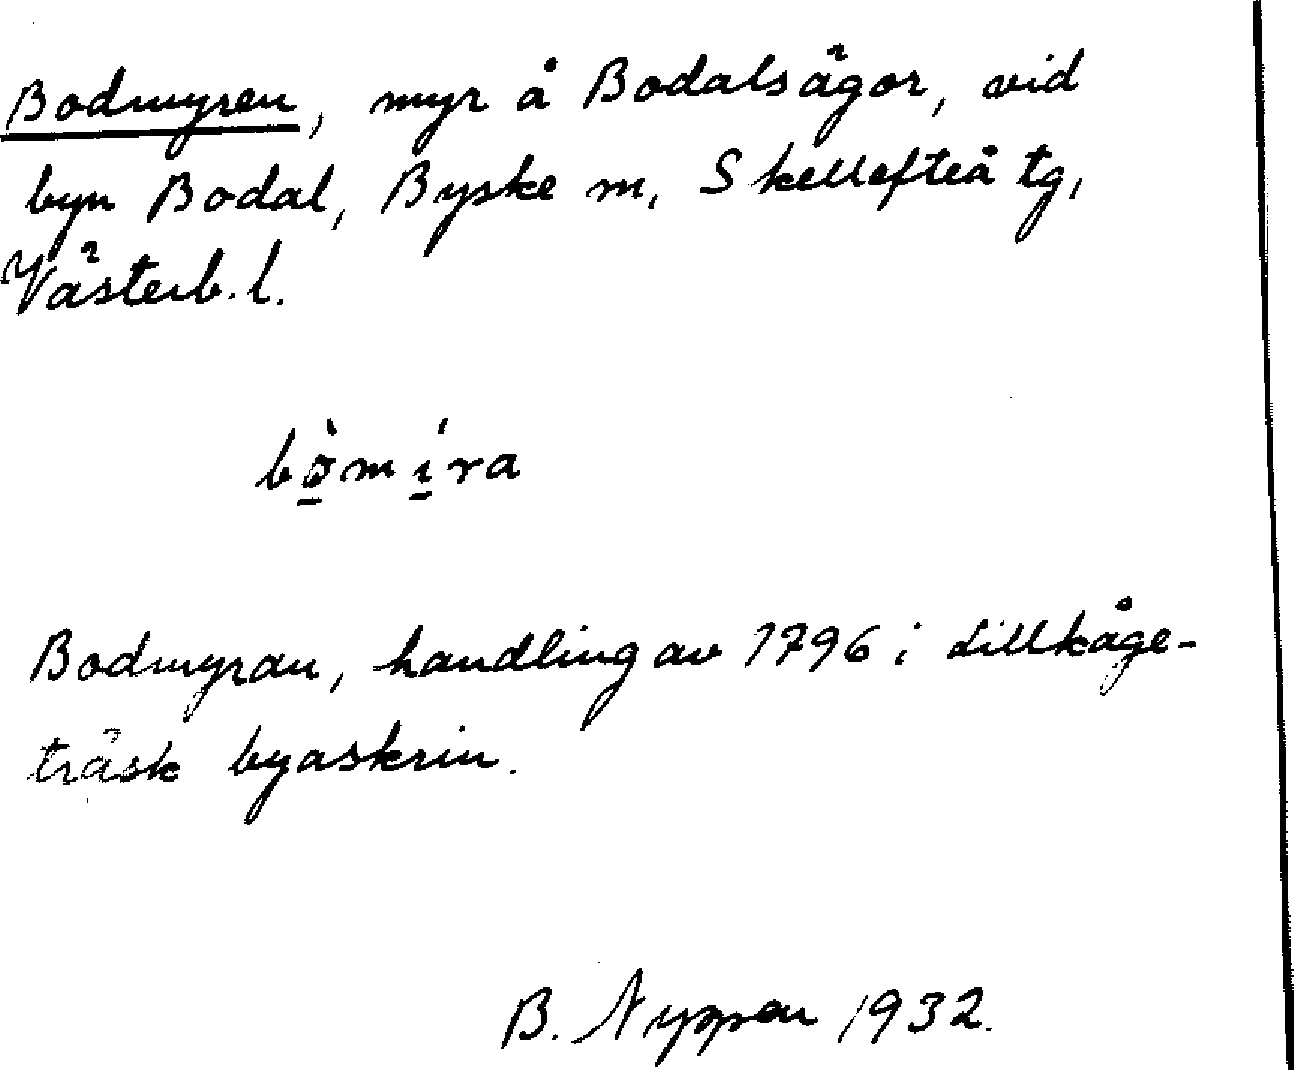 Bodmyren, myr å Bodalsägor, vid
byn Bodal, Byske m, Skellefteå tg,
Västerb. l.
Bodmyran, handling av 1796 i Lillkåge-
träsk byaskrin.
B. 1932.